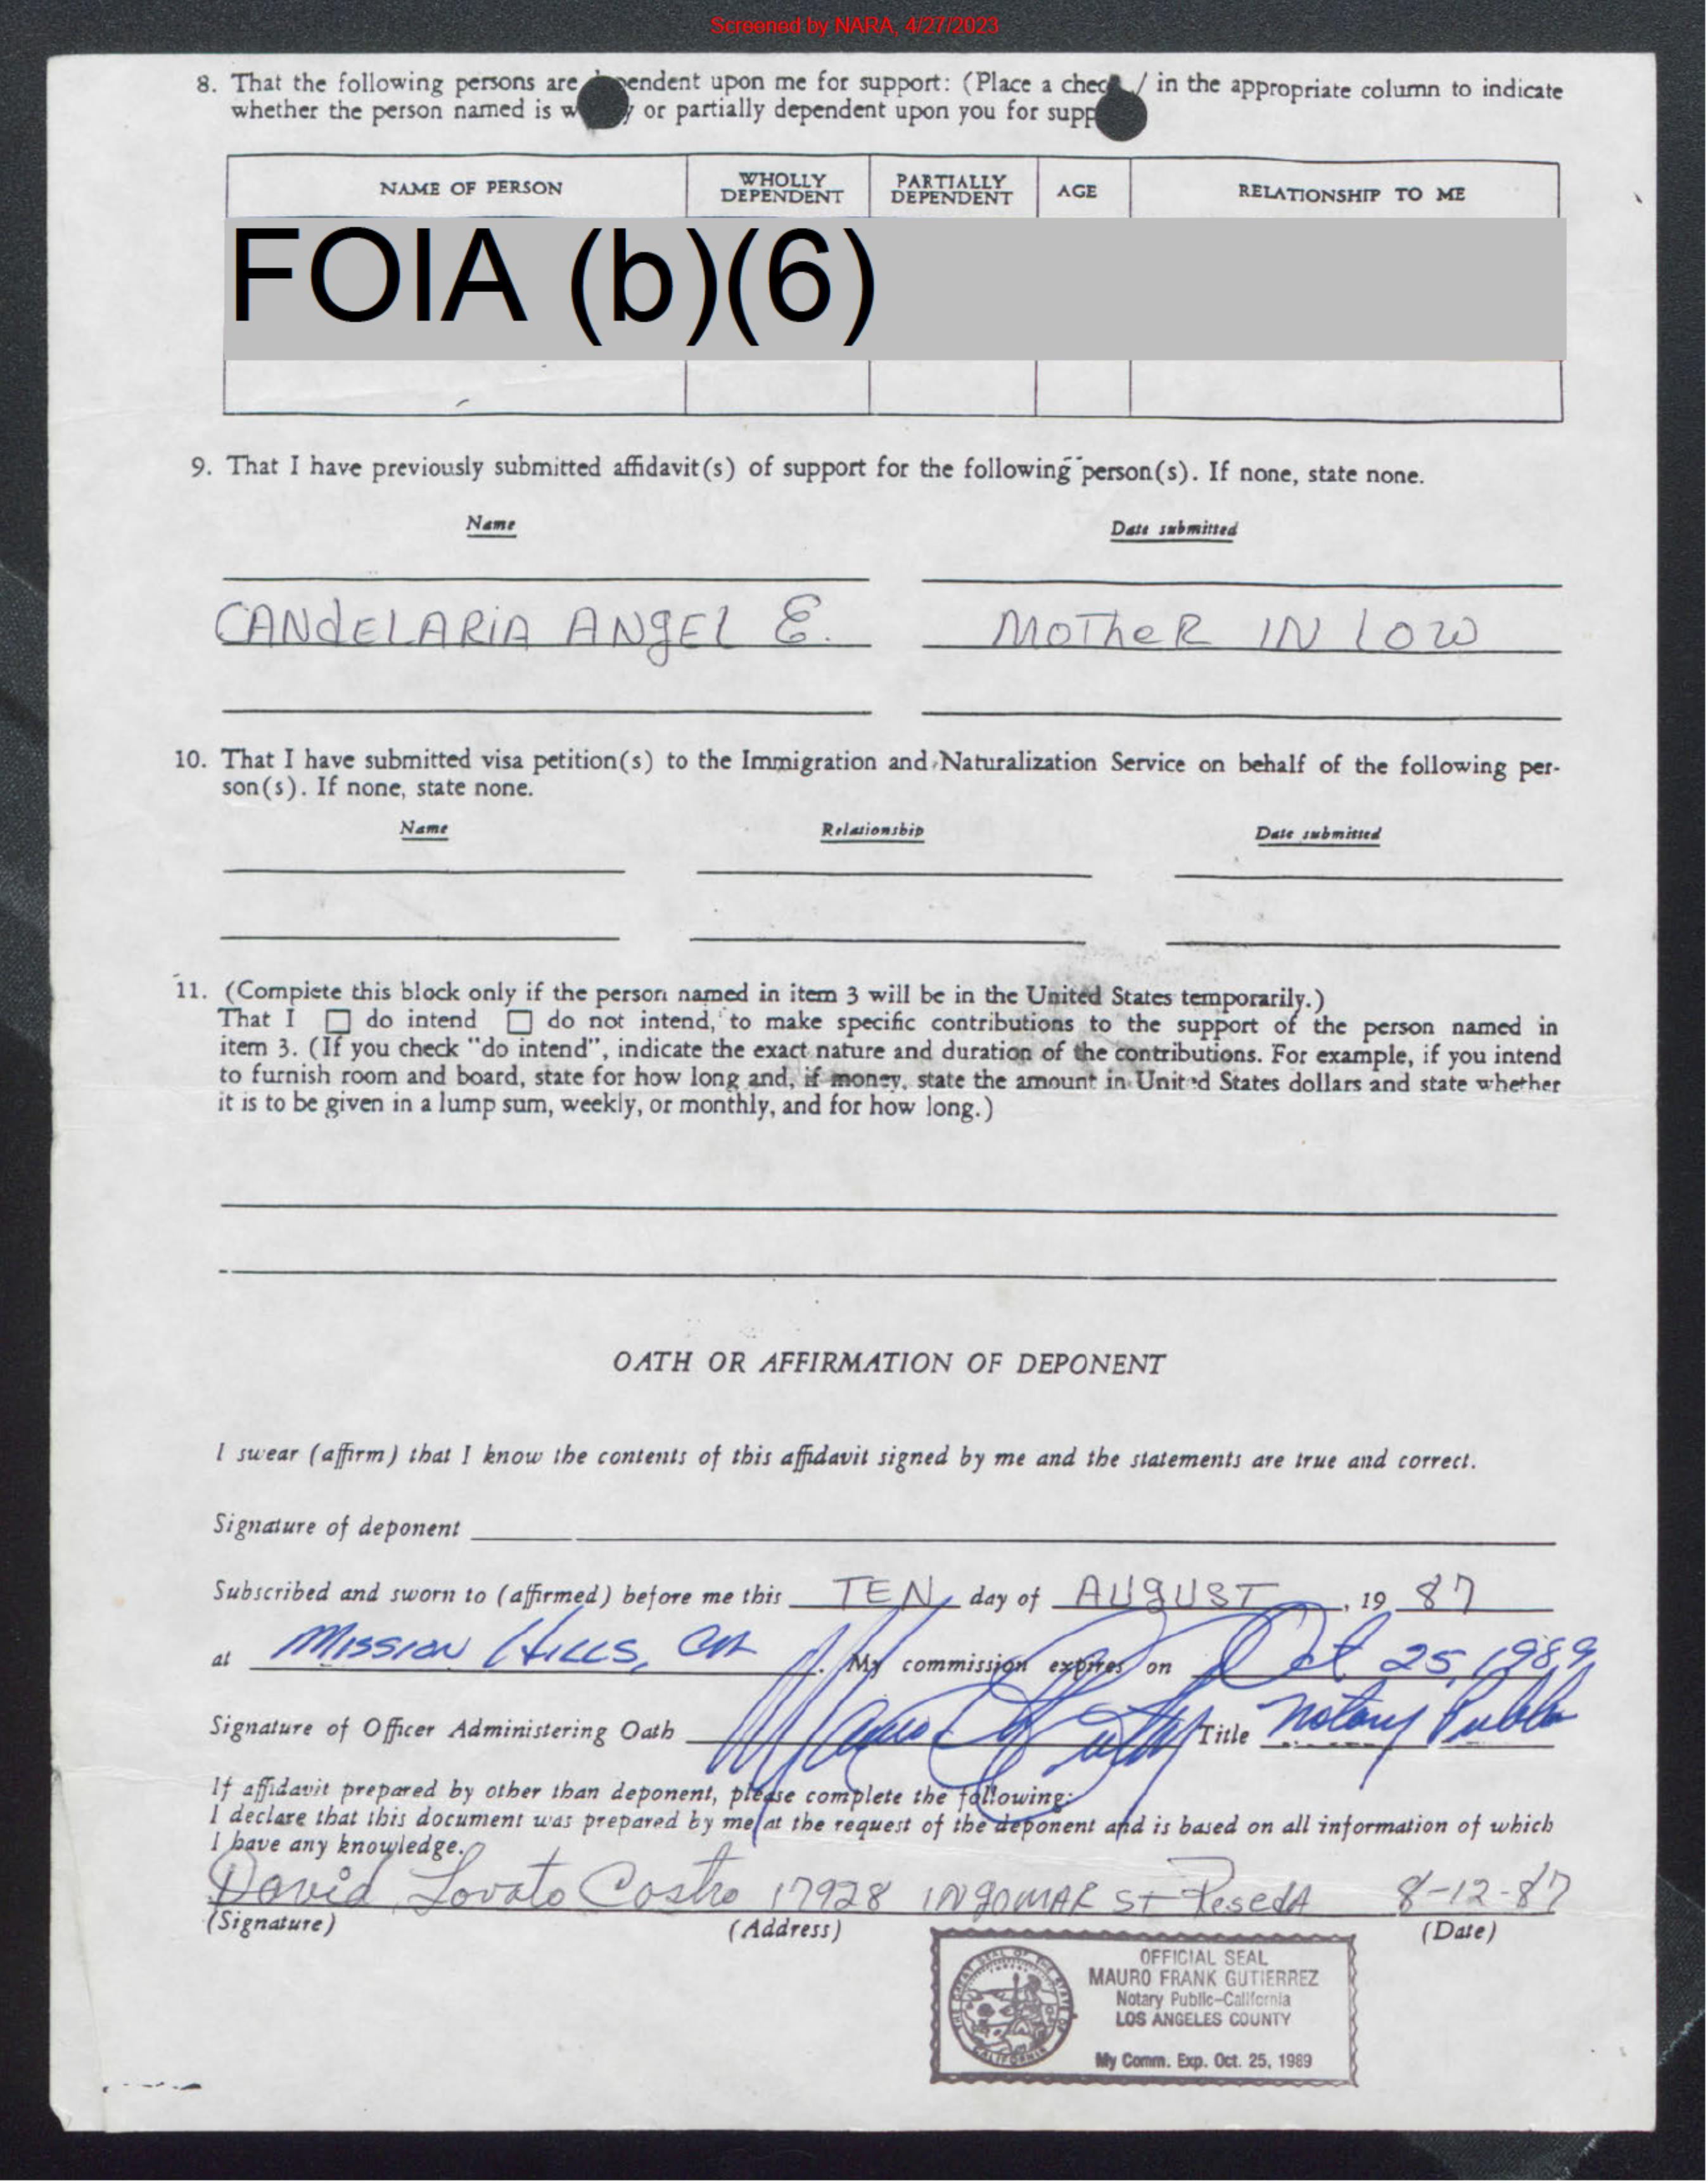 Screened by NARA, 4/27/2023
8. That the following persons are pendent upon me for support: (Place a chec / in the appropriate column to indicate
whether the person named is w y or partially dependent upon you for supp
NAME OF PERSON
WHOLLY DEPENDENT
PARTIALLY DEPENDENT
AGE
RELATIONSHIP TO ME
FOIA (b)(6)
9. That I have previously submitted affidavit(s) of support for the following person(s). If none, state none.
Name Date submitted
CANdELARiA ANgEl E. MOTheR IN lOW
10. That I have submitted visa petition(s) to the Immigration and Naturalization Service on behalf of the following per-
son(s). If none, state none.
Name Relationship Date submitted
11. (Complete this block only if the person named in item 3 will be in the United States temporarily.)
That I ☐ do intend ☐ do not intend, to make specific contributions to the support of the person named in
item 3. (If you check "do intend", indicate the exact nature and duration of the contributions. For example, if you intend
to furnish room and board, state for how long and, if money, state the amount in United States dollars and state whether
it is to be given in a lump sum, weekly, or monthly, and for how long.)
OATH OR AFFIRMATION OF DEPONENT
I swear (affirm) that I know the contents of this affidavit signed by me and the statements are true and correct.
Signature of deponent
Subscribed and sworn to (affirmed) before me this TEN day of AUgUST, 19 87
at Mission Hills, CA. My commission expires on Oct 25, 1989
Signature of Officer Administering Oath Title Notary Public
If affidavit prepared by other than deponent, please complete the following:
I declare that this document was prepared by me at the request of the deponent and is based on all information of which
I have any knowledge.
David Lovato Castro 17928 INgOMAR St Reseda 8-12-87
(Signature) (Address) (Date)
THE GREAT SEAL OF THE STATE OF CALIFORNIA
OFFICIAL SEAL
MAURO FRANK GUTIERREZ
Notary Public-California
LOS ANGELES COUNTY
My Comm. Exp. Oct. 25, 1989